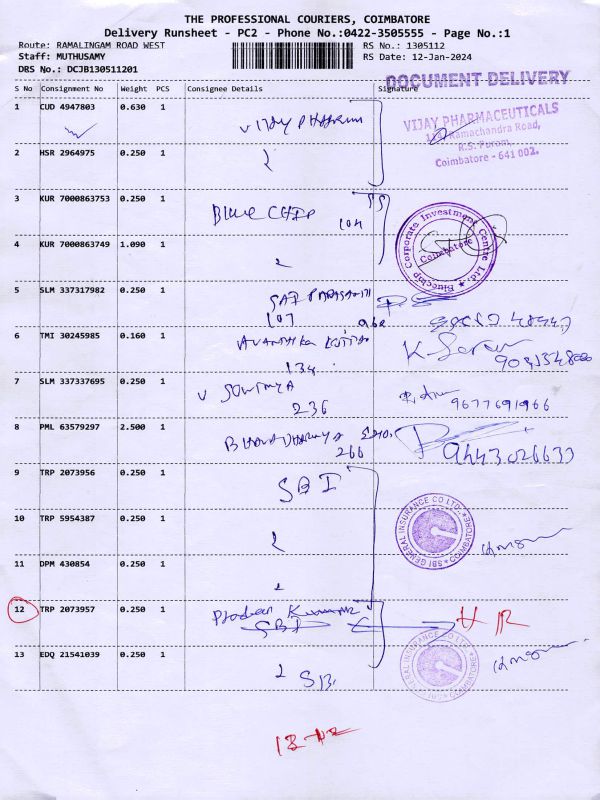 THE PROFESSIONAL COURIERS, COIMBATORE
Delivery Runsheet - PC2 - Phone No.:0422-3505555 - Page No.:1
Route: RAMALINGAM ROAD WEST RS No.: 1305112
Staff: MUTHUSAMY RS Date: 12-Jan-2024
DRS No.: DCJB130511201
DOCUMENT DELIVERY
S No Consignment No Weight PCS Consignee Details Signature
1 CUD 4947803 0.630 1 Vijay Pharma
VIJAY PHARMACEUTICALS
Ramachandra Road,
R.S. Puram,
Coimbatore - 641 002.
2 HSR 2964975 0.250 1
3 KUR 7000863753 0.250 1 Blue Chip
104
Bluechip Corporate Investment Centre Ltd. * Coimbatore
4 KUR 7000863749 1.090 1
5 SLM 337317982 0.250 1
107
6 TMI 30245985 0.160 1
134
7 SLM 337337695 0.250 1 V Sowmya
236 9677691966
8 PML 63579297 2.500 1
266 9443026633
9 TRP 2073956 0.250 1 SBI
SBI GENERAL INSURANCE CO LTD., * COIMBATORE *
10 TRP 5954387 0.250 1
11 DPM 430854 0.250 1
12 TRP 2073957 0.250 1 Kumar
SBI
GENERAL INSURANCE CO LTD * COIMBATORE
13 EDQ 21541039 0.250 1